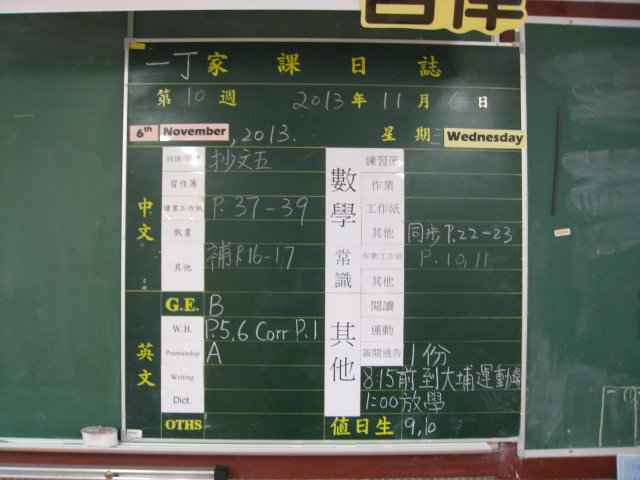 一丁家課日誌
第10週 2013年11月6日
6th November, 2013. 星期 Wednesday
中文
抄文五
習作簿
課業工作紙 P.37-39
默書
其他 補P.16-17
數學
練習簿
作業
工作紙
其他 同步P.22-23
常識
作業/工作紙 P.10,11
其他
英文
G.E. B
W.B. P.5,6 Corr P.1
Penmanship A
Writing
Dict.
OTHS
其他
閱讀
運動
簽閱通告 1份
8:15前到大埔運動場
1:00放學
值日生 9,10